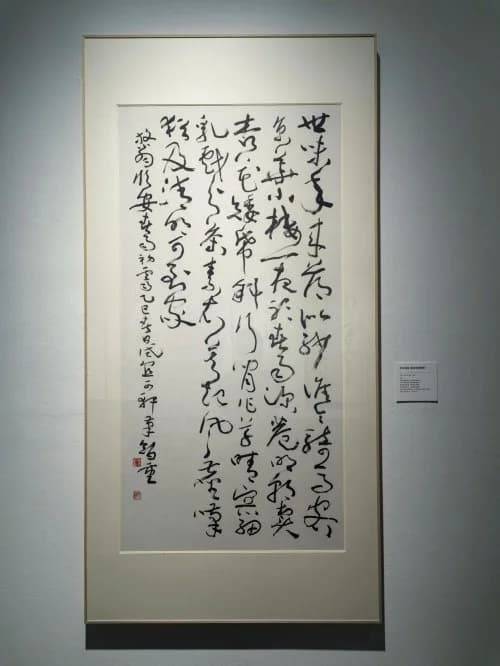 世味年来薄似纱谁令骑马客
京華小楼一夜听春雨深巷明朝卖
杏花矮纸斜行闲作草晴窗细
乳戏分茶素衣莫起风尘嘆
猶及清明可到家
放翁临安春雨初霁乙巳春日